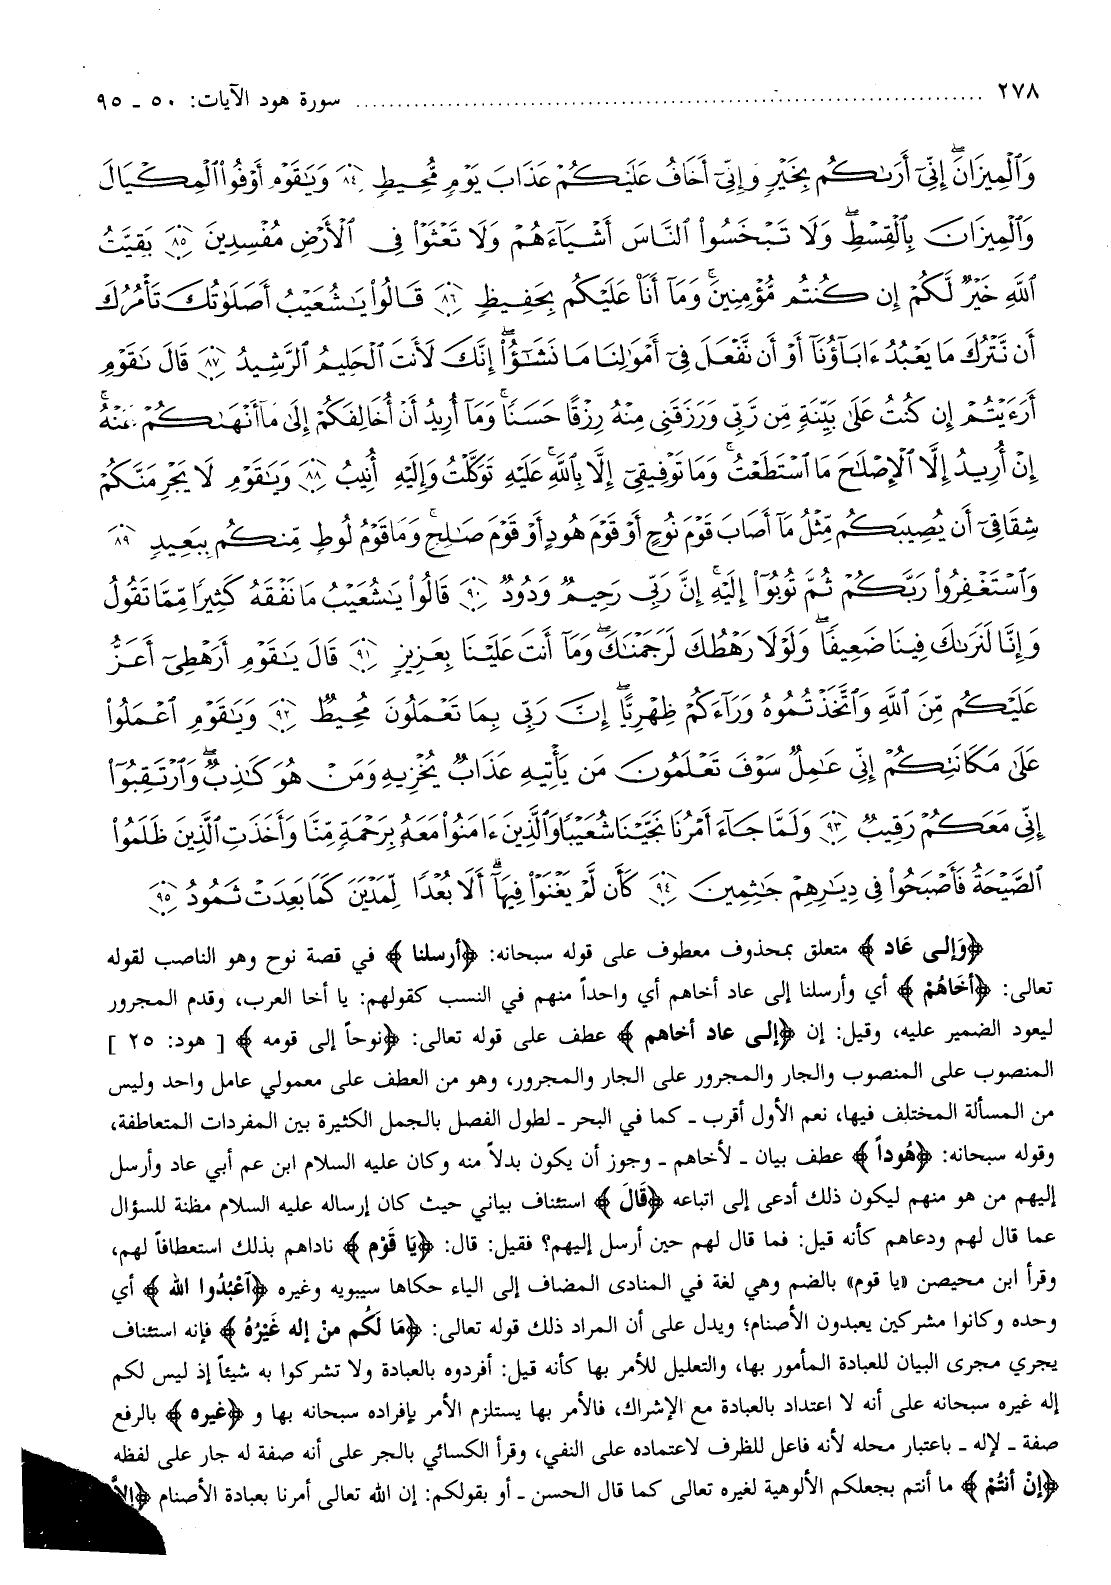 ٢٧٨ ........................................................................ سورة هود الآيات: ٥٠ ـ ٩٥
وَٱلْمِيزَانَ ۚ إِنِّىٓ أَرَىٰكُم بِخَيْرٍ وَإِنِّىٓ أَخَافُ عَلَيْكُمْ عَذَابَ يَوْمٍ مُّحِيطٍ ٨٤ وَيَٰقَوْمِ أَوْفُوا۟ ٱلْمِكْيَالَ
وَٱلْمِيزَانَ بِٱلْقِسْطِ ۖ وَلَا تَبْخَسُوا۟ ٱلنَّاسَ أَشْيَآءَهُمْ وَلَا تَعْثَوْا۟ فِى ٱلْأَرْضِ مُفْسِدِينَ ٨٥ بَقِيَّتُ
ٱللَّهِ خَيْرٌ لَّكُمْ إِن كُنتُم مُّؤْمِنِينَ ۚ وَمَآ أَنَا۠ عَلَيْكُم بِحَفِيظٍ ٨٦ قَالُوا۟ يَٰشُعَيْبُ أَصَلَوٰتُكَ تَأْمُرُكَ
أَن نَّتْرُكَ مَا يَعْبُدُ ءَابَآؤُنَآ أَوْ أَن نَّفْعَلَ فِىٓ أَمْوَٰلِنَا مَا نَشَٰٓؤُا۟ ۖ إِنَّكَ لَأَنتَ ٱلْحَلِيمُ ٱلرَّشِيدُ ٨٧ قَالَ يَٰقَوْمِ
أَرَءَيْتُمْ إِن كُنتُ عَلَىٰ بَيِّنَةٍ مِّن رَّبِّى وَرَزَقَنِى مِنْهُ رِزْقًا حَسَنًا ۚ وَمَآ أُرِيدُ أَنْ أُخَالِفَكُمْ إِلَىٰ مَآ أَنْهَىٰكُمْ عَنْهُ ۚ
إِنْ أُرِيدُ إِلَّا ٱلْإِصْلَٰحَ مَا ٱسْتَطَعْتُ ۚ وَمَا تَوْفِيقِىٓ إِلَّا بِٱللَّهِ ۚ عَلَيْهِ تَوَكَّلْتُ وَإِلَيْهِ أُنِيبُ ٨٨ وَيَٰقَوْمِ لَا يَجْرِمَنَّكُمْ
شِقَاقِىٓ أَن يُصِيبَكُم مِّثْلُ مَآ أَصَابَ قَوْمَ نُوحٍ أَوْ قَوْمَ هُودٍ أَوْ قَوْمَ صَٰلِحٍ ۚ وَمَا قَوْمُ لُوطٍ مِّنكُم بِبَعِيدٍ ٨٩
وَٱسْتَغْفِرُوا۟ رَبَّكُمْ ثُمَّ تُوبُوٓا۟ إِلَيْهِ ۚ إِنَّ رَبِّى رَحِيمٌ وَدُودٌ ٩٠ قَالُوا۟ يَٰشُعَيْبُ مَا نَفْقَهُ كَثِيرًا مِّمَّا تَقُولُ
وَإِنَّا لَنَرَىٰكَ فِينَا ضَعِيفًا ۖ وَلَوْلَا رَهْطُكَ لَرَجَمْنَٰكَ ۖ وَمَآ أَنتَ عَلَيْنَا بِعَزِيزٍ ٩١ قَالَ يَٰقَوْمِ أَرَهْطِىٓ أَعَزُّ
عَلَيْكُم مِّنَ ٱللَّهِ وَٱتَّخَذْتُمُوهُ وَرَآءَكُمْ ظِهْرِيًّا ۖ إِنَّ رَبِّى بِمَا تَعْمَلُونَ مُحِيطٌ ٩٢ وَيَٰقَوْمِ ٱعْمَلُوا۟
عَلَىٰ مَكَانَتِكُمْ إِنِّى عَٰمِلٌ سَوْفَ تَعْلَمُونَ مَن يَأْتِيهِ عَذَابٌ يُخْزِيهِ وَمَنْ هُوَ كَٰذِبٌ ۖ وَٱرْتَقِبُوٓا۟
إِنِّى مَعَكُمْ رَقِيبٌ ٩٣ وَلَمَّا جَآءَ أَمْرُنَا نَجَّيْنَا شُعَيْبًا وَٱلَّذِينَ ءَامَنُوا۟ مَعَهُۥ بِرَحْمَةٍ مِّنَّا وَأَخَذَتِ ٱلَّذِينَ ظَلَمُوا۟
ٱلصَّيْحَةُ فَأَصْبَحُوا۟ فِى دِيَٰرِهِمْ جَٰثِمِينَ ٩٤ كَأَن لَّمْ يَغْنَوْا۟ فِيهَآ ۗ أَلَا بُعْدًا لِّمَدْيَنَ كَمَا بَعِدَتْ ثَمُودُ ٩٥
﴿وَإلى عَاد﴾ متعلق بمحذوف معطوف على قوله سبحانه: ﴿أرسلنا﴾ في قصة نوح وهو الناصب لقوله
تعالى: ﴿أخَاهُمْ﴾ أي وأرسلنا إلى عاد أخاهم أي واحداً منهم في النسب كقولهم: يا أخا العرب، وقدم المجرور
ليعود الضمير عليه، وقيل: إن ﴿إلى عاد أخاهم﴾ عطف على قوله تعالى: ﴿نوحاً إلى قومه﴾ [ هود: ٢٥ ]
المنصوب على المنصوب والجار والمجرور على الجار والمجرور، وهو من العطف على معمولي عامل واحد وليس
من المسألة المختلف فيها، نعم الأول أقرب ـ كما في البحر ـ لطول الفصل بالجمل الكثيرة بين المفردات المتعاطفة،
وقوله سبحانه: ﴿هُوداً﴾ عطف بيان ـ لأخاهم ـ وجوز أن يكون بدلاً منه وكان عليه السلام ابن عم أبي عاد وأرسل
إليهم من هو منهم ليكون ذلك أدعى إلى اتباعه ﴿قَالَ﴾ استئناف بياني حيث كان إرساله عليه السلام مظنة للسؤال
عما قال لهم ودعاهم كأنه قيل: فما قال لهم حين أرسل إليهم؟ فقيل: قال: ﴿يَا قَوْم﴾ ناداهم بذلك استعطافاً لهم،
وقرأ ابن محيصن «يا قوم» بالضم وهي لغة في المنادى المضاف إلى الياء حكاها سيبويه وغيره ﴿آعْبُدُوا الله﴾ أي
وحده وكانوا مشركين يعبدون الأصنام؛ ويدل على أن المراد ذلك قوله تعالى: ﴿مَا لَكُم منْ إله غَيْرُهُ﴾ فإنه استئناف
يجري مجرى البيان للعبادة المأمور بها، والتعليل للأمر بها كأنه قيل: أفردوه بالعبادة ولا تشركوا به شيئاً إذ ليس لكم
إله غيره سبحانه على أنه لا اعتداد بالعبادة مع الإشراك، فالأمر بها يستلزم الأمر بإفراده سبحانه بها و ﴿غيره﴾ بالرفع
صفة ـ لإله ـ باعتبار محله لأنه فاعل للظرف لاعتماده على النفي، وقرأ الكسائي بالجر على أنه صفة له جار على لفظه
﴿إنْ أنتُمْ﴾ ما أنتم بجعلكم الألوهية لغيره تعالى كما قال الحسن ـ أو بقولكم: إن الله تعالى أمرنا بعبادة الأصنام ﴿إلاَّ